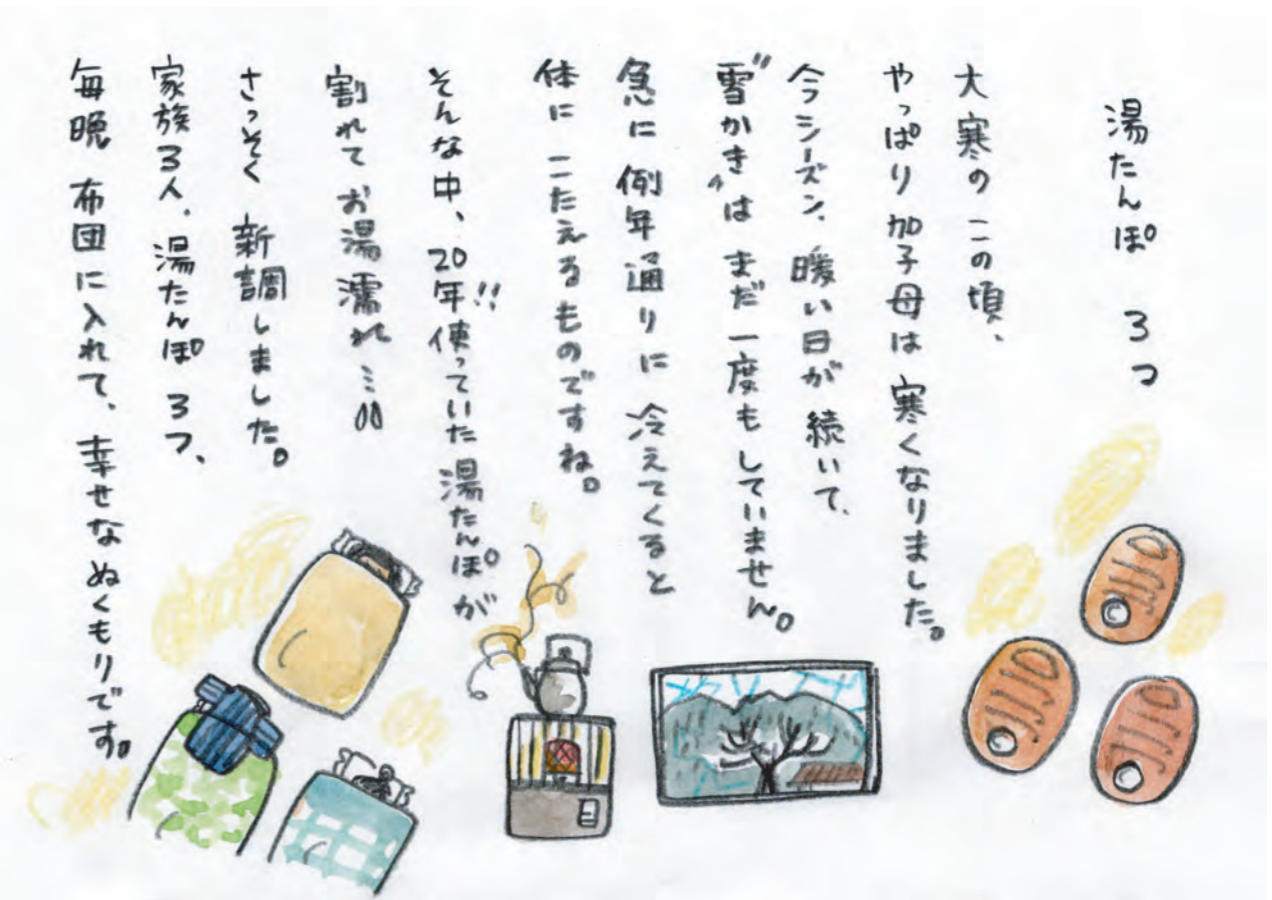 湯たんぽ 3つ
大寒のこの頃、
やっぱり加子母は寒くなりました。
今シーズン、暖い日が続いて、
〝雪かき〟はまだ一度もしていません。
急に例年通りに冷えてくると
体にこたえるものですね。
そんな中、20年!!使っていた湯たんぽが
割れてお湯濡れ…
さっそく新調しました。
家族3人、湯たんぽ3つ、
毎晩布団に入れて、幸せなぬくもりです。